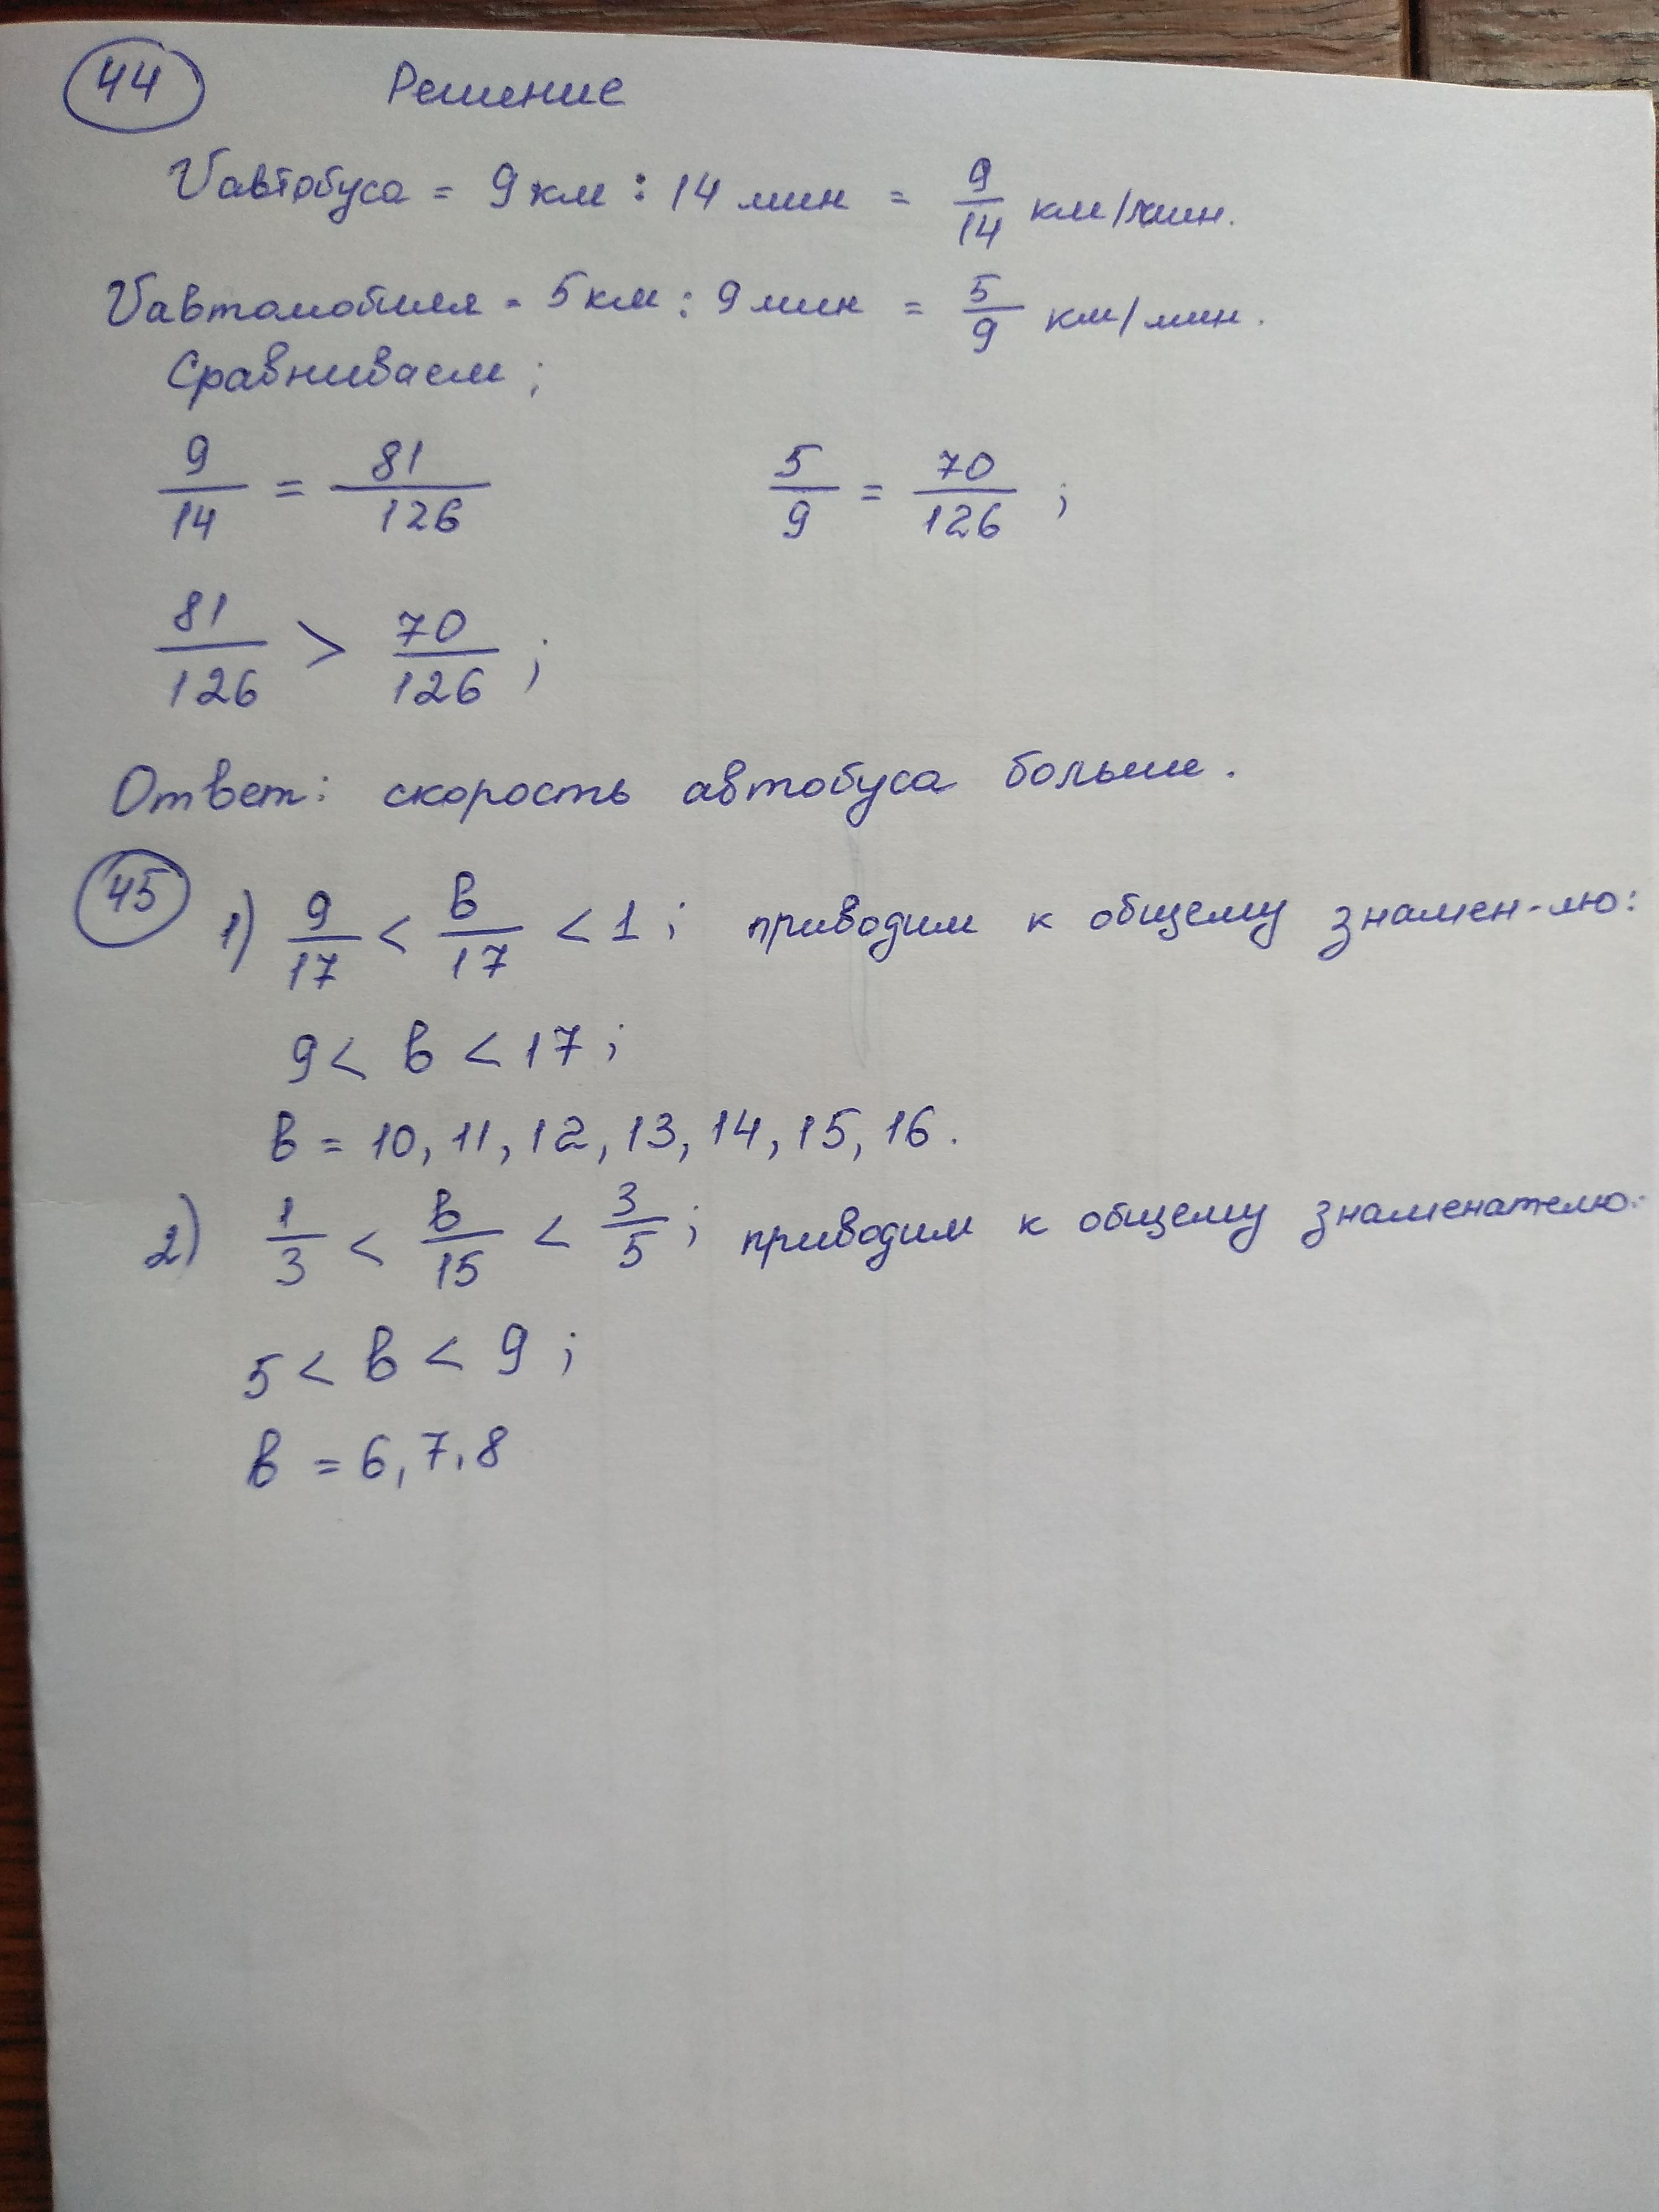 44 Решение
Vавтобуса = 9 км : 14 мин = 9/14 км/мин.
Vавтомобиля = 5 км : 9 мин = 5/9 км/мин.
Сравниваем ;
9/14 = 81/126 5/9 = 70/126 ;
81/126 > 70/126 ;
Ответ: скорость автобуса больше.
45 1) 9/17 < в/17 < 1 ; приводим к общему знамен-лю:
9 < в < 17 ;
в = 10, 11, 12, 13, 14, 15, 16.
2) 1/3 < в/15 < 3/5 ; приводим к общему знаменателю:
5 < в < 9 ;
в = 6, 7, 8